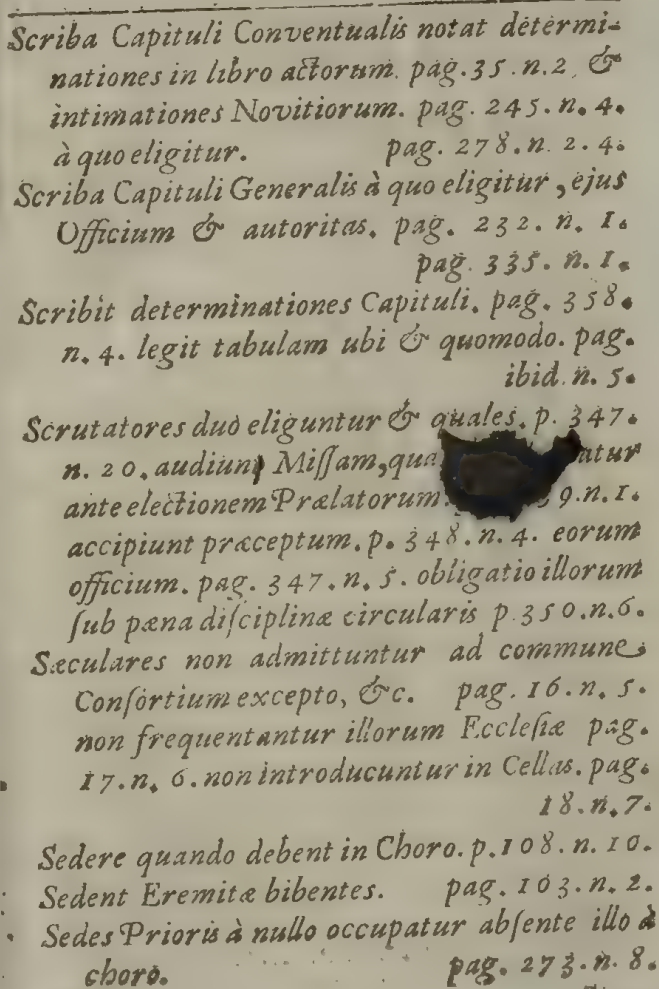 Scriba Capituli Conventualis notat determi-
nationes in libro actorum. pag. 35. n. 2, &
intimationes Novitiorum. pag. 245. n. 4.
à quo eligitur. pag. 278. n. 2. 4.
Scriba Capituli Generalis à quo eligitur, ejus
Officium & autoritas. pag. 232. n. 1.
pag. 335. n. 1.
Scribit determinationes Capituli. pag. 358.
n. 4. legit tabulam ubi & quomodo. pag.
ibid. n. 5.
Scrutatores duo eliguntur & quales. p. 347.
n. 20. audiunt Miſſam, atur
ante electionem Prælatorum. 9. n. 1.
accipiunt præceptum. p. 348. n. 4. eorum
officium. pag. 347. n. 5. obligatio illorum
ſub pæna diſciplinæ circularis p. 350. n. 6.
Sæculares non admittuntur ad commune
Conſortium excepto, &c. pag. 16. n. 5.
non frequentantur illorum Eccleſiæ pag.
17. n. 6. non introducuntur in Cellas. pag.
18. n. 7.
Sedere quando debent in Choro. p. 108. n. 10.
Sedent Eremitæ bibentes. pag. 103. n. 2.
Sedes Prioris à nullo occupatur abſente illo à
choro. pag. 273. n. 8.